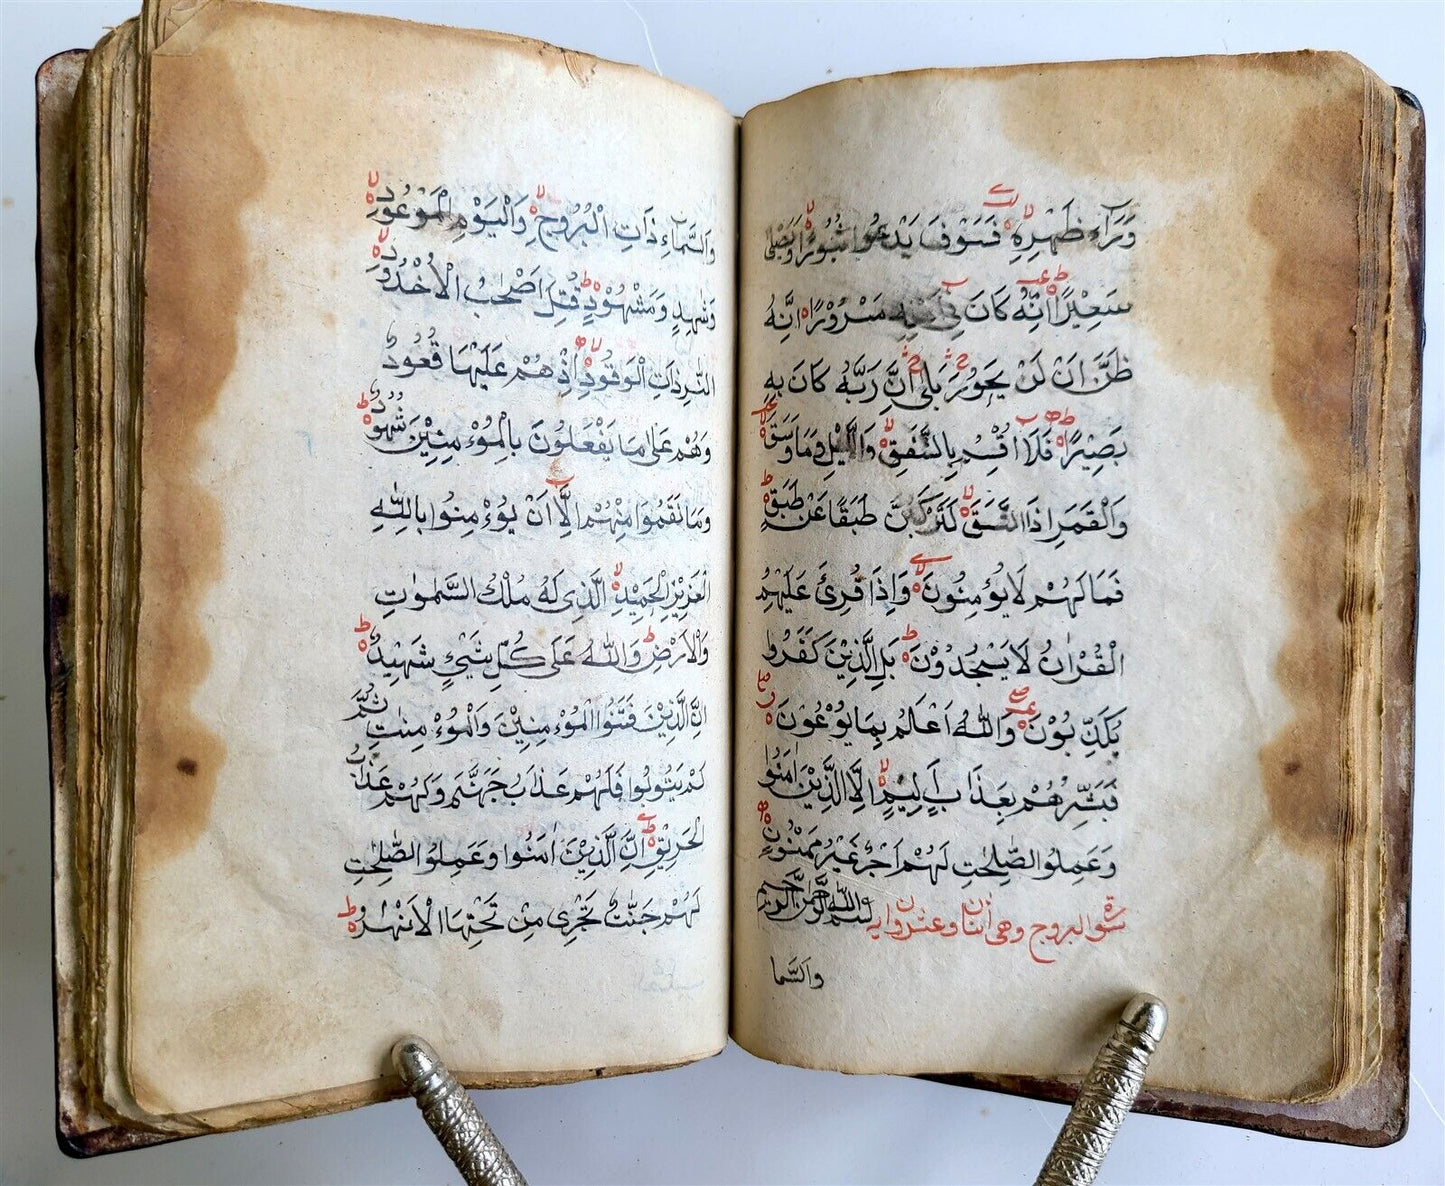 وَرَآءَ ظَهْرِهٖ فَسَوْفَ يَدْعُوا ثُبُوْرًا وَيَصْلٰى
سَعِيْرًا اِنَّهٗ كَانَ فِىْ اَهْلِهٖ مَسْرُوْرًا اِنَّهٗ
ظَنَّ اَنْ لَنْ يَحُوْرَ بَلٰى اِنَّ رَبَّهٗ كَانَ بِهٖ
بَصِيْرًا فَلَا اُقْسِمُ بِالشَّفَقِ وَالَّيْلِ وَمَا وَسَقَ
وَالْقَمَرِ اِذَا اتَّسَقَ لَتَرْكَبُنَّ طَبَقًا عَنْ طَبَقٍ
فَمَا لَهُمْ لَا يُؤْمِنُوْنَ وَاِذَا قُرِئَ عَلَيْهِمُ
الْقُرْاٰنُ لَا يَسْجُدُوْنَ بَلِ الَّذِيْنَ كَفَرُوْا
يُكَذِّبُوْنَ وَاللّٰهُ اَعْلَمُ بِمَا يُوْعُوْنَ
فَبَشِّرْهُمْ بِعَذَابٍ اَلِيْمٍ اِلَّا الَّذِيْنَ اٰمَنُوْا
وَعَمِلُوا الصّٰلِحٰتِ لَهُمْ اَجْرٌ غَيْرُ مَمْنُوْنٍ
سورة البروج وهى اثنان وعشرون اية بسم الله الرحمن الرحيم
والسما
وَالسَّمَآءِ ذَاتِ الْبُرُوْجِ وَالْيَوْمِ الْمَوْعُوْدِ
وَشَاهِدٍ وَمَشْهُوْدٍ قُتِلَ اَصْحٰبُ الْاُخْدُوْدِ
النَّارِ ذَاتِ الْوَقُوْدِ اِذْ هُمْ عَلَيْهَا قُعُوْدٌ
وَهُمْ عَلٰى مَا يَفْعَلُوْنَ بِالْمُؤْمِنِيْنَ شُهُوْدٌ
وَمَا نَقَمُوْا مِنْهُمْ اِلَّا اَنْ يُؤْمِنُوْا بِاللّٰهِ
الْعَزِيْزِ الْحَمِيْدِ الَّذِى لَهٗ مُلْكُ السَّمٰوٰتِ
وَالْاَرْضِ وَاللّٰهُ عَلٰى كُلِّ شَىْءٍ شَهِيْدٌ
اِنَّ الَّذِيْنَ فَتَنُوا الْمُؤْمِنِيْنَ وَالْمُؤْمِنٰتِ ثُمَّ
لَمْ يَتُوْبُوْا فَلَهُمْ عَذَابُ جَهَنَّمَ وَلَهُمْ عَذَابُ
الْحَرِيْقِ اِنَّ الَّذِيْنَ اٰمَنُوْا وَعَمِلُوا الصّٰلِحٰتِ
لَهُمْ جَنّٰتٌ تَجْرِى مِنْ تَحْتِهَا الْاَنْهٰرُ